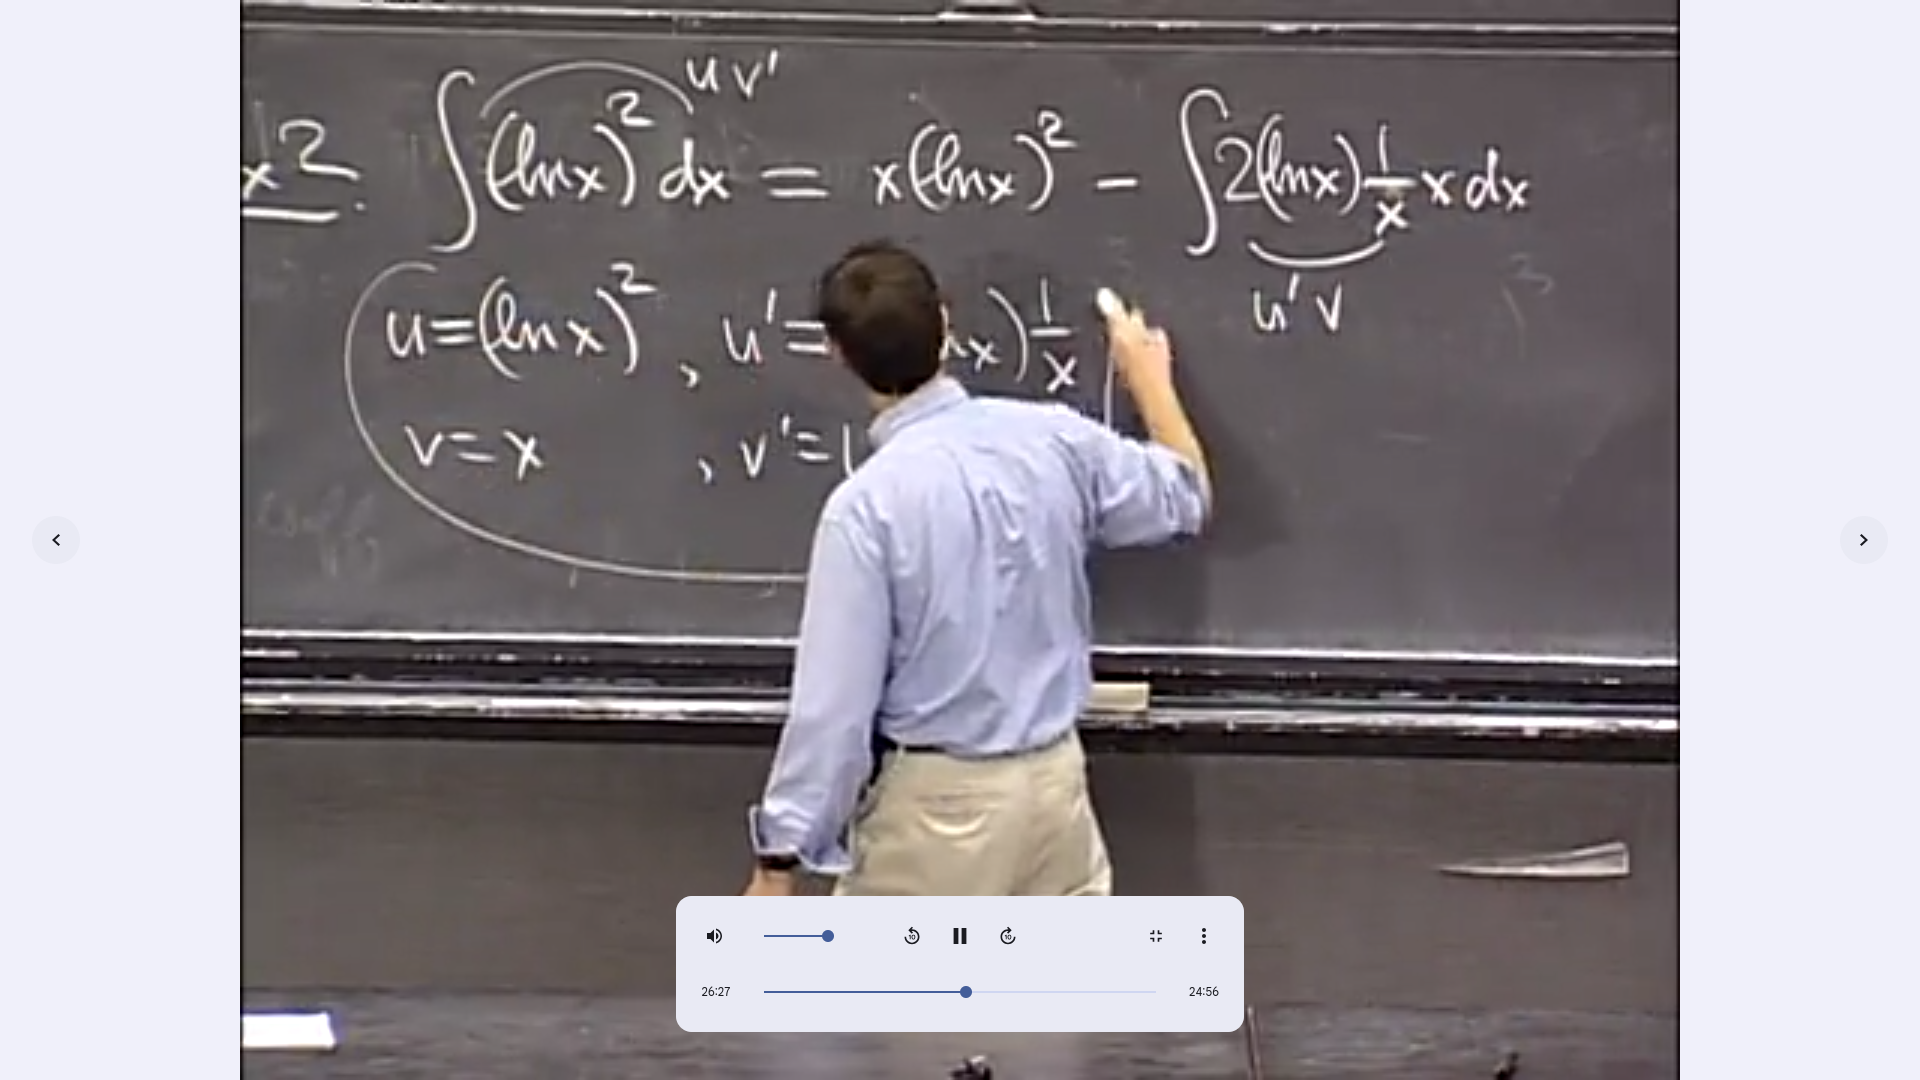 x 2. ∫(ln x)² dx = x(ln x)² - ∫2(ln x) 1/x x dx
u v'
u' v
u = (ln x)², u' = x) 1/x
v = x, v' = 1
10
10
26:27
24:56